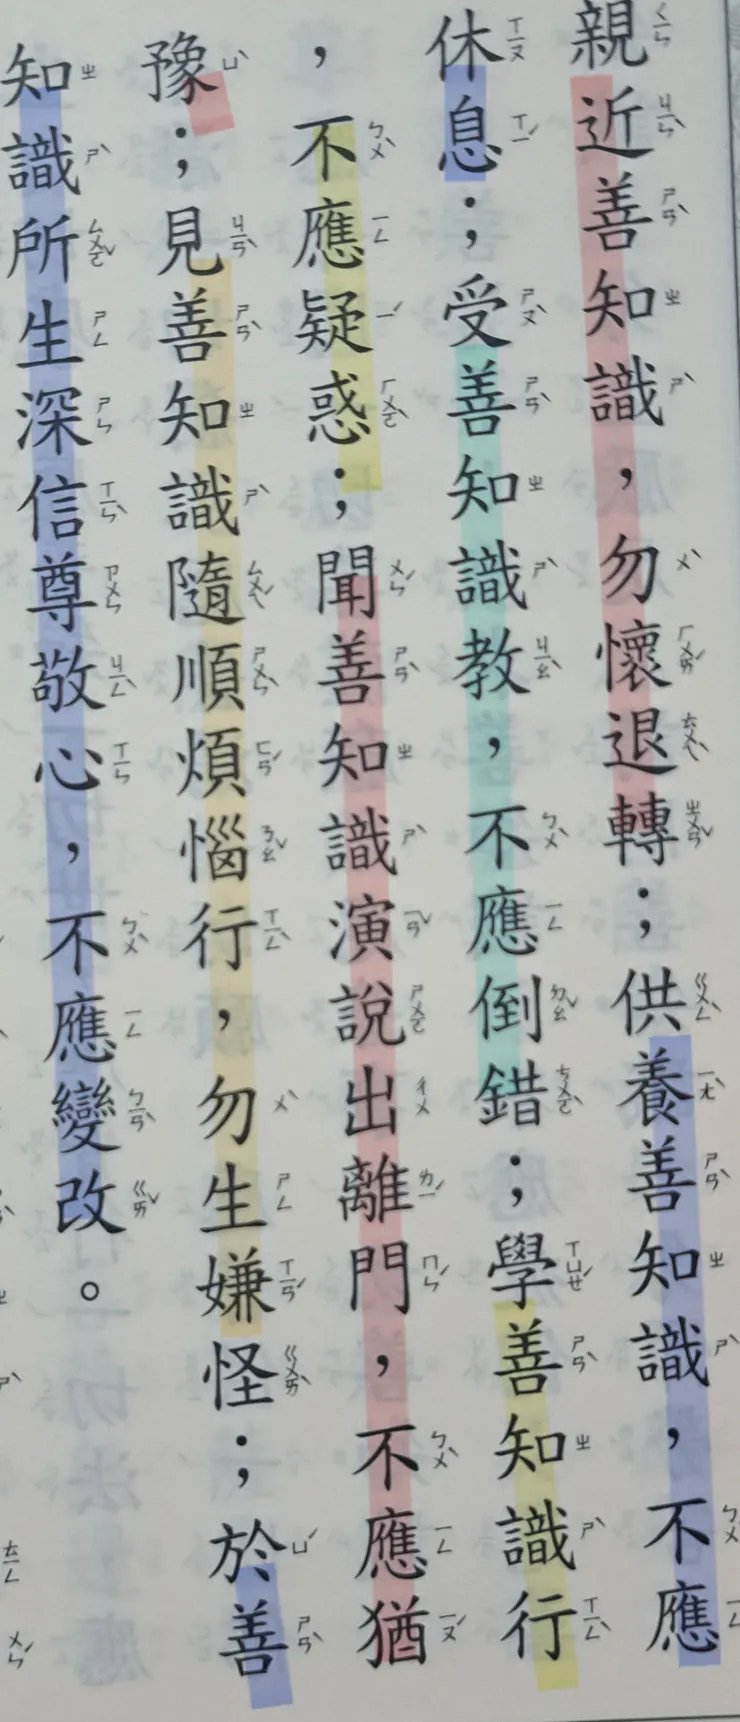 親近善知識，勿懷退轉；供養善知識，不應
休息；受善知識教，不應倒錯；學善知識行
，不應疑惑；聞善知識演說出離門，不應猶
豫；見善知識隨順煩惱行，勿生嫌怪；於善
知識所生深信尊敬心，不應變改。